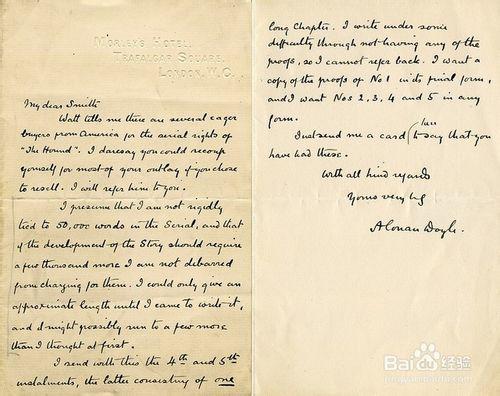 MORLEY'S HOTEL.
TRAFALGAR SQUARE.
LONDON, W.C.
My dear Smith
Watt tells me there are several eager
buyers from America for the serial rights of
"The Hound". I daresay you could recoup
yourself for most of your outlay if you chose
to resell. I will refer him to you.
I presume that I am not rigidly
tied to 50,000 words in the Serial, and that
if the development of the Story should require
a few thousand more I am not debarred
from charging for them. I could only give an
approximate length until I came to write it,
and it might possibly run to a few more
than I thought at first.
I send with this the 4th and 5th
instalments, the latter consisting of one
long chapter. I write under some
difficulty through not having any of the
proofs, so I cannot refer back. I want a
copy of the proofs of No 1 in its final form,
and I want Nos 2, 3, 4 and 5 in any
form.
Just send me a card (here) to say that you
have had these.
With all kind regards
Yours very truly
A Conan Doyle.
Baidu 经验
jingyan.baidu.com